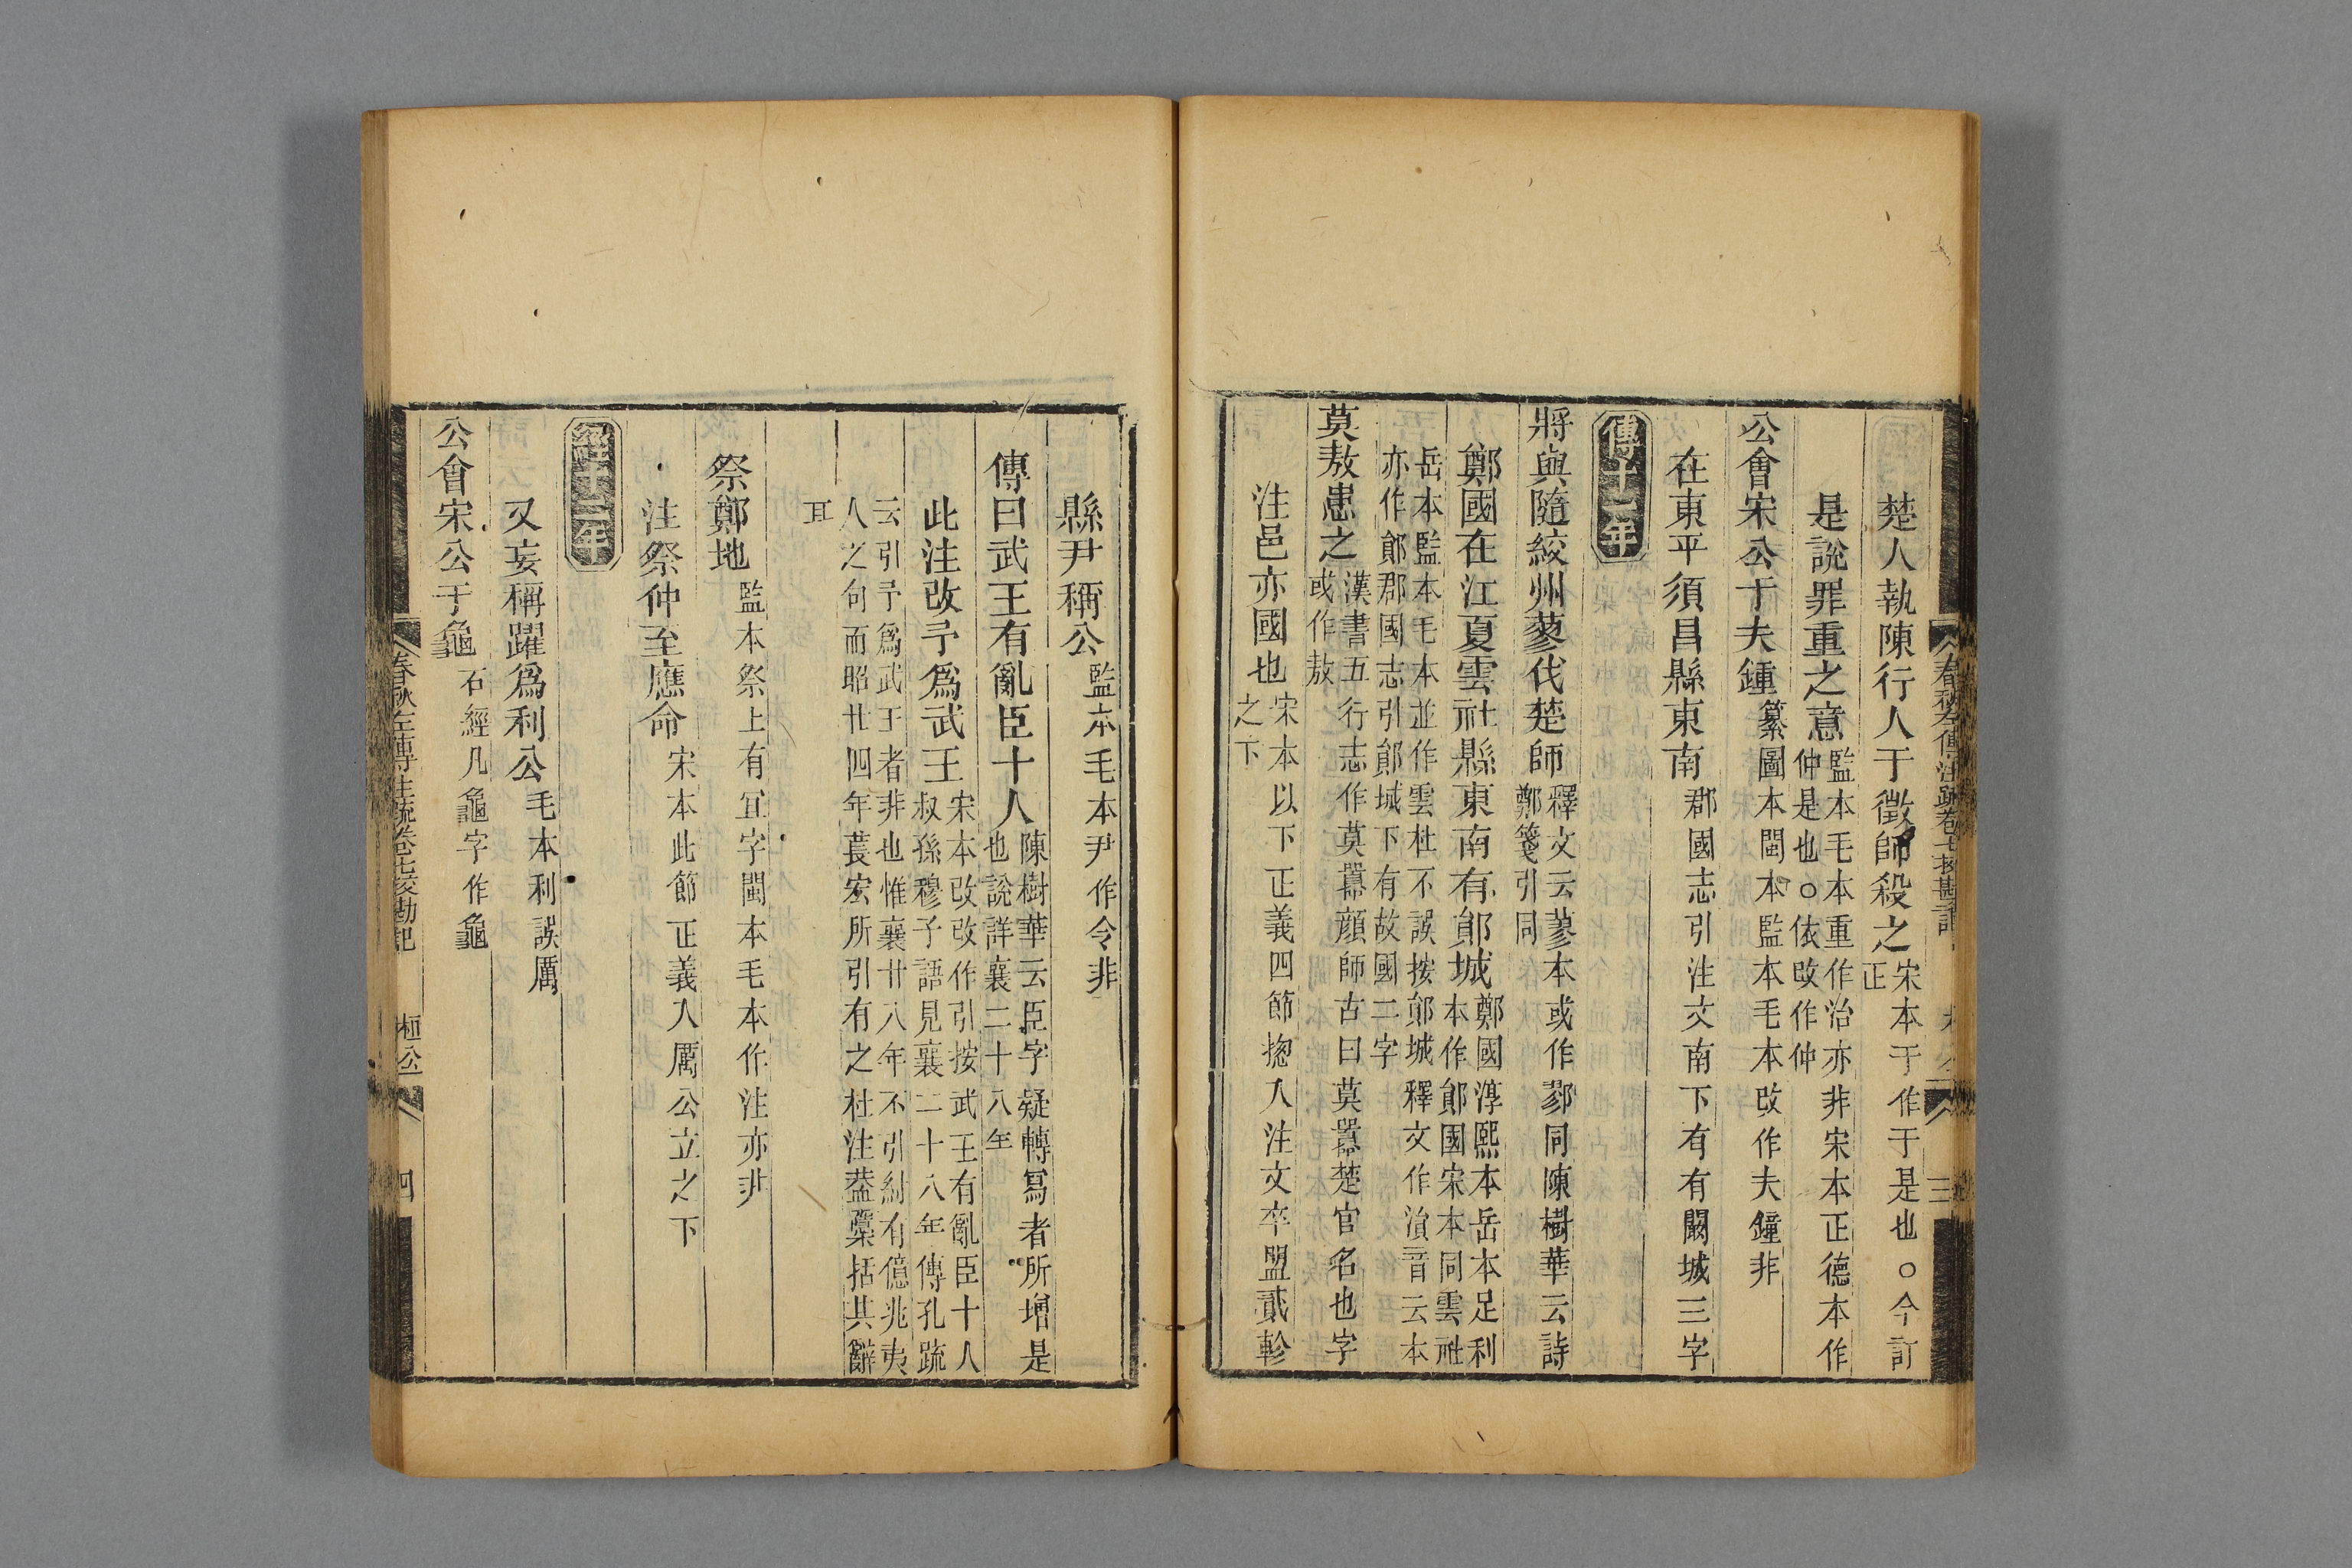 楚人執陳行人于徵師殺之宋本于作于是也○今訂正
是說罪重之意監本毛本重作治亦非宋本正德本作仲是也○依改作仲
公會宋公于夫鍾纂圖本閩本監本毛本改作夫鐘非
在東平須昌縣東南郡國志引注文南下有有闞城三字
傳十一年
將與隨絞州蓼伐楚師釋文云蓼本或作鄝同陳樹華云詩鄭箋引同
鄭國在江夏雲社縣東南有鄖城鄭國淳熙本岳本足利本作鄖國宋本同雲社
岳本監本毛本並作雲杜不誤按鄖城釋文作溳音云本亦作鄖郡國志引鄖城下有故國二字
莫敖患之漢書五行志作莫囂顔師古曰莫囂楚官名也字或作敖
注邑亦國也宋本以下正義四節揔入注文卒盟貳軫之下
春秋左傳注疏卷七挍勘記
三
縣尹稱公監本毛本尹作令非
傳曰武王有亂臣十人陳樹華云臣字疑轉寫者所增是也說詳襄二十八年
此注改予爲武王宋本改改作引按武王有亂臣十人叔孫穆子語見襄二十八年傳孔疏
云引予爲武王者非也惟襄廿八年不引紂有億兆夷人之句而昭廿四年萇宏所引有之杜注葢櫽括其辭
耳
祭鄭地監本祭上有宜字閩本毛本作注亦非
注祭仲至應命宋本此節正義入厲公立之下
經十二年
又妄稱躍爲利公毛本利誤厲
公會宋公于龜石經凡龜字作龜
春秋左傳注疏卷七挍勘記
桓公
四